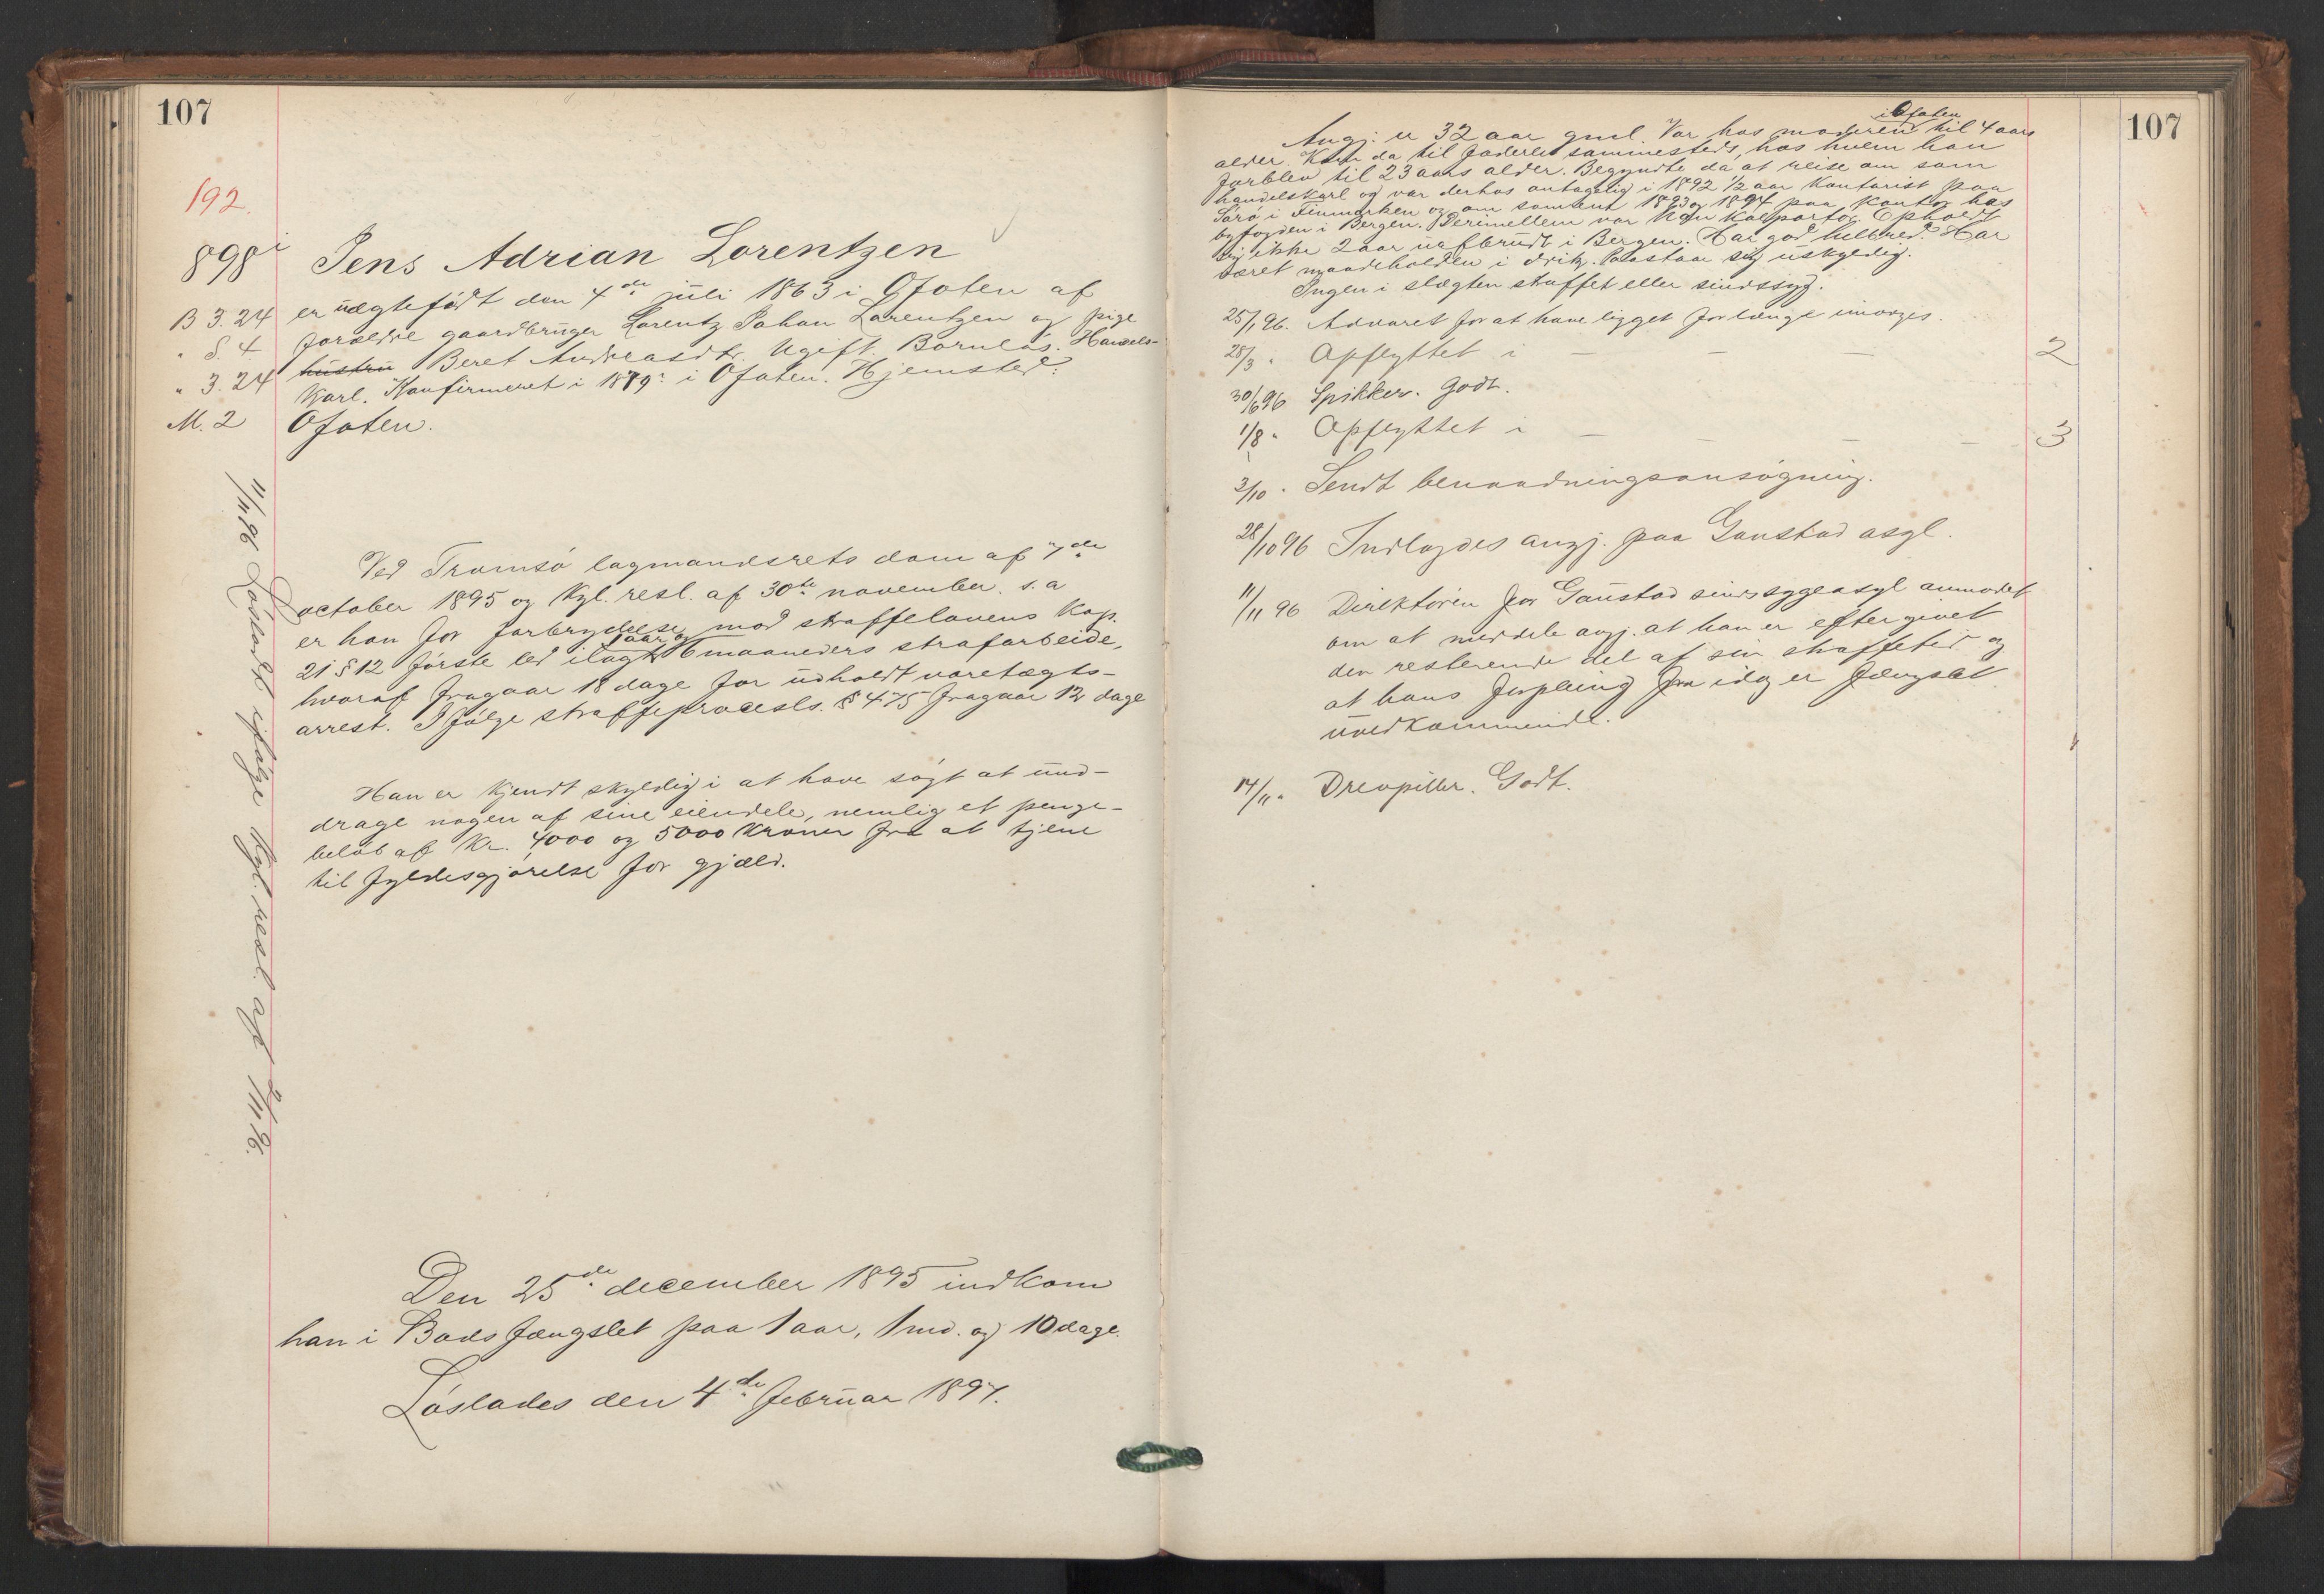 107
192.
898
Jens Adrian Lorentzen
er uægtefödt den 4de juli 1863 i Ofoten af
B 3. 24
forældre gaardbruger Lorentz Johan Lorentzen og pige
" S. 4
hustru Beret Andreasdtr. Ugift. Barnlös. Handels-
" 3. 24
karl. Konfirmeret i 1879 i Ofoten. Hjemsted:
M. 2
Ofoten.
11/11 96 Lösladt ifölge Kgl. resl. af 2/11 96.
Ved Tromsö lagmandsrets dom af 7de
october 1895 og Kgl. resl. af 30te november s. a
er han for forbrydelse mod straffelovens Kap.
21 § 12 förste led ilagt 1 aar og 6 maaneders strafarbeide,
hvoraf fragaar 18 dage for udholdt varetægts-
arrest. Ifölge straffeprocesls. § 475 fragaar 12 dage
Han er kjendt skyldig i at have sögt at und-
drage nogen af sine eiendele, nemlig et penge-
belöb af Kr. 4000 og 5000 Kroner fra at tjene
til fyldesgjörelse for gjæld.
Den 25de december 1895 indkom
han i Bodsfængslet paa 1 aar, 1 md. og 10 dage.
Löslades den 4de februar 1897.
107
Angj. er 32 aar gml. Var hos moderen i Ofoten til 4 aars
alder. Kom da til faderen sammesteds, hos hvem han
forblev til 23 aars alder. Begyndte da at reise om som
handelskarl og var derhos antagelig i 1892 1/2 aar Kontorist paa
Sörö i Finmarken og om sommeren 1893 og 1894 paa Kontor hos
byfogden i Bergen. Derimellem var han Kolportör. Opholdt
sig ikke 2 aar uafbrudt i Bergen. Har god helbred. Har
været maadeholden i drik. Paastaar sig uskyldig.
Ingen i slægten straffet eller sindssyg.
25/1 96. Advaret for at have ligget for længe imorges.
28/3 " Opflyttet i — — — 2
30/6 96 Spikker. Godt.
1/8 " Opflyttet i — — — — 3
3/10 " Sendt benaadningsansögning.
28/10 96 Indlagdes angj. paa Gaustad asyl.
11/11 96 Direktören for Gaustad sindssygeasyl anmodet
om at meddele angj. at han er eftergivet
den resterende del af sin straffetid og
at hans forpleining fra idag er fængslet
uvedkommende.
14/11 " Drevpiller. Godt.